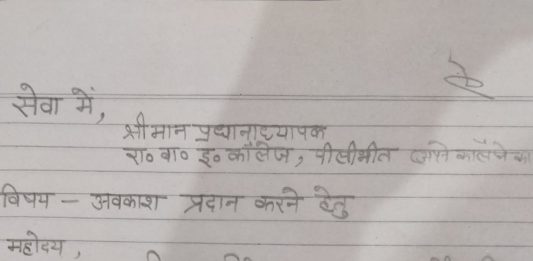 सेवा में,
श्रीमान प्रधानाध्यापक
रा० बा० इ० कॉलेज, पीलीभीत
विषय - अवकाश प्रदान करने हेतु
महोदय,